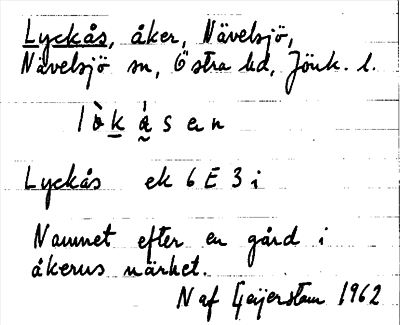 Lyckås, åker, Nävelsjö,
Nävelsjö sn, Östra hd, Jönk. l.
lò̀k á̰sen
Lyckås ek 6 E 3 i
Namnet efter en gård i
åkerns närhet.
N af Geijerstam 1962